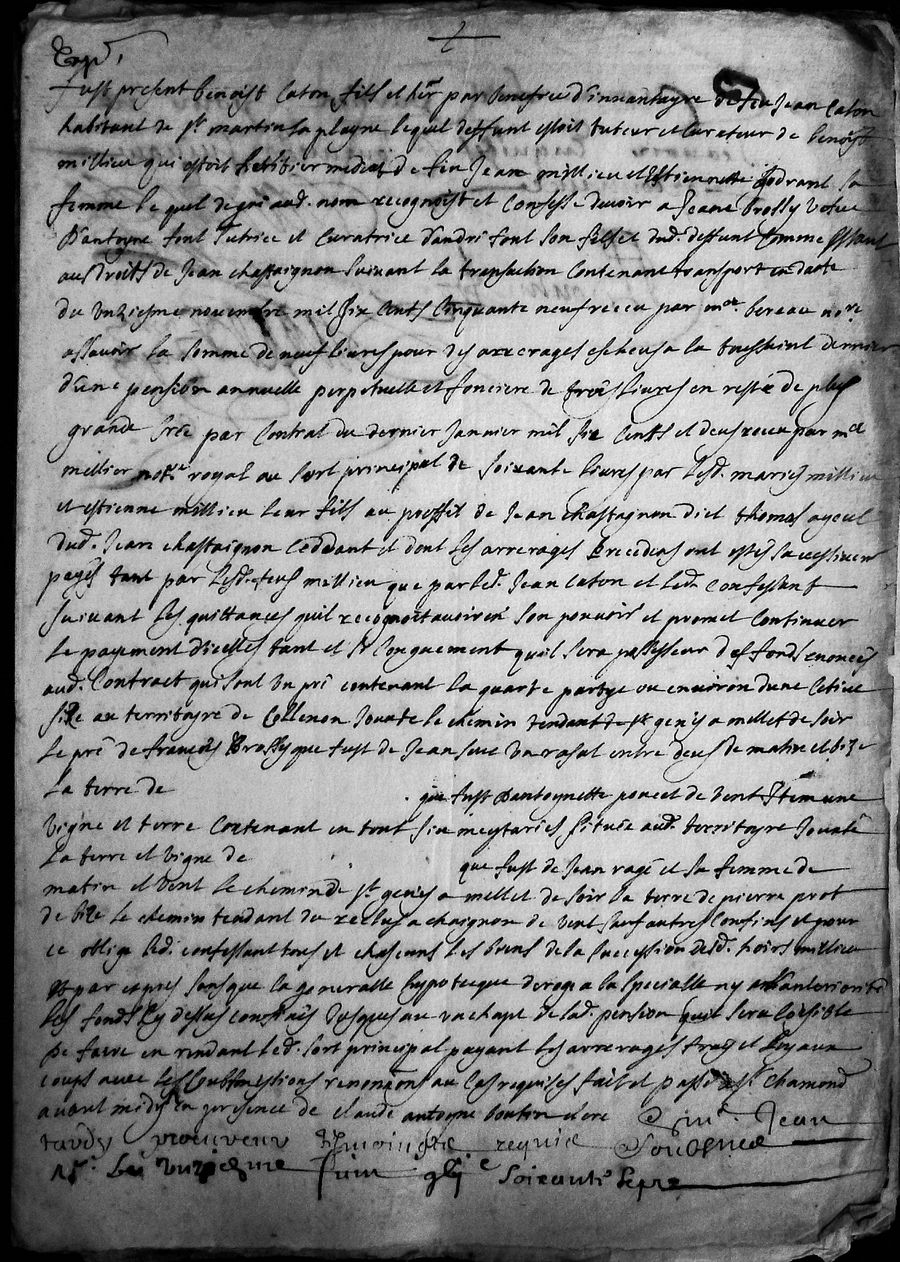 Exp^e
Fust present benoist Caton fils et her par benefice d'inventayre de feu Jean Caton
habitant de s^t martin la playne lequel deffunt estoit tuteur et curateur de benoist
millieu qui estoit heritier mediat de feu Jean millieu et Estiennette sa
femme le quel de gré aud. nom recognoist et Confesse devoir a Jeane brossy vefve
d'antoyne font tutrice et curatrice d'andré font son fils et dud. deffunt Comme
au droits de Jean chastaignon suivant la transaction contenant transport en datte
du unziesme novembre mil six Cents Cinquante neuf receu par m^e bereau no^re
assavoir la somme de neuf livres pour des arrerages escheus a la toussaint dernier
d'une pension annuelle perpetuelle et fonciere de trois livres en reste de plus
grande par Contrat du dernier Janvier mil six Cents et deux receu par m^e
mellier not^re royal au sort principal de soixante livres par lesd. mariés millieu
et estienne millieu leur fils au proffit de Jean chastagnon dict thomas ayeul
dud. Jean chastaignon Ceddant et dont les arrerages precedens ont estés
payés tant par lesd. feus millieu que par led. Jean Caton et led. Confessant
suivant les quittances quil recognoit avoir en son pouvoir et promet Continuer
le payement d'icelles tant et si longuement quil sera possesseur des fonds enoncés
aud. Contract qui sont un pré contenant la quarte partye ou environ d'une
size au territoyre de Collenon Jouxte le chemin tendant de s^t genys a mellet de soir
le pré de francois Brossy que fust de Jean un rasat entre deux de matin et bize
la terre de que fust d'antoynette poncet de vent Item une
vigne et terre Contenant en tout six meytariés située aud. territoyre Jouxte
la terre et vigne de que fust de Jean ragé et sa femme de
matin et vent le chemin de s^t genys a mellet de soir la terre de pierre prot
de bize le chemin tendant du reclus a chaignon de vent sauf autres Confins et pour
ce oblige led. confessant tous et chascuns les biens de la succession desd. hoirs millieu
et par expres sans que la generalle hypotecque deroge a la specialle ny
les fonds cy dessus confinés Jusques au rachapt de lad. pension quil sera loisible
de faire en rendant led. sort principal payant les arrerages frays et loyaux
coups avec les soubmissions renon^on au Cas requises fait et passé a s^t chamond
avant midy en presence de claude antoyne bouton clerc S^r m^e Jean
requis
n^re Le unziesme Juin soixante sept